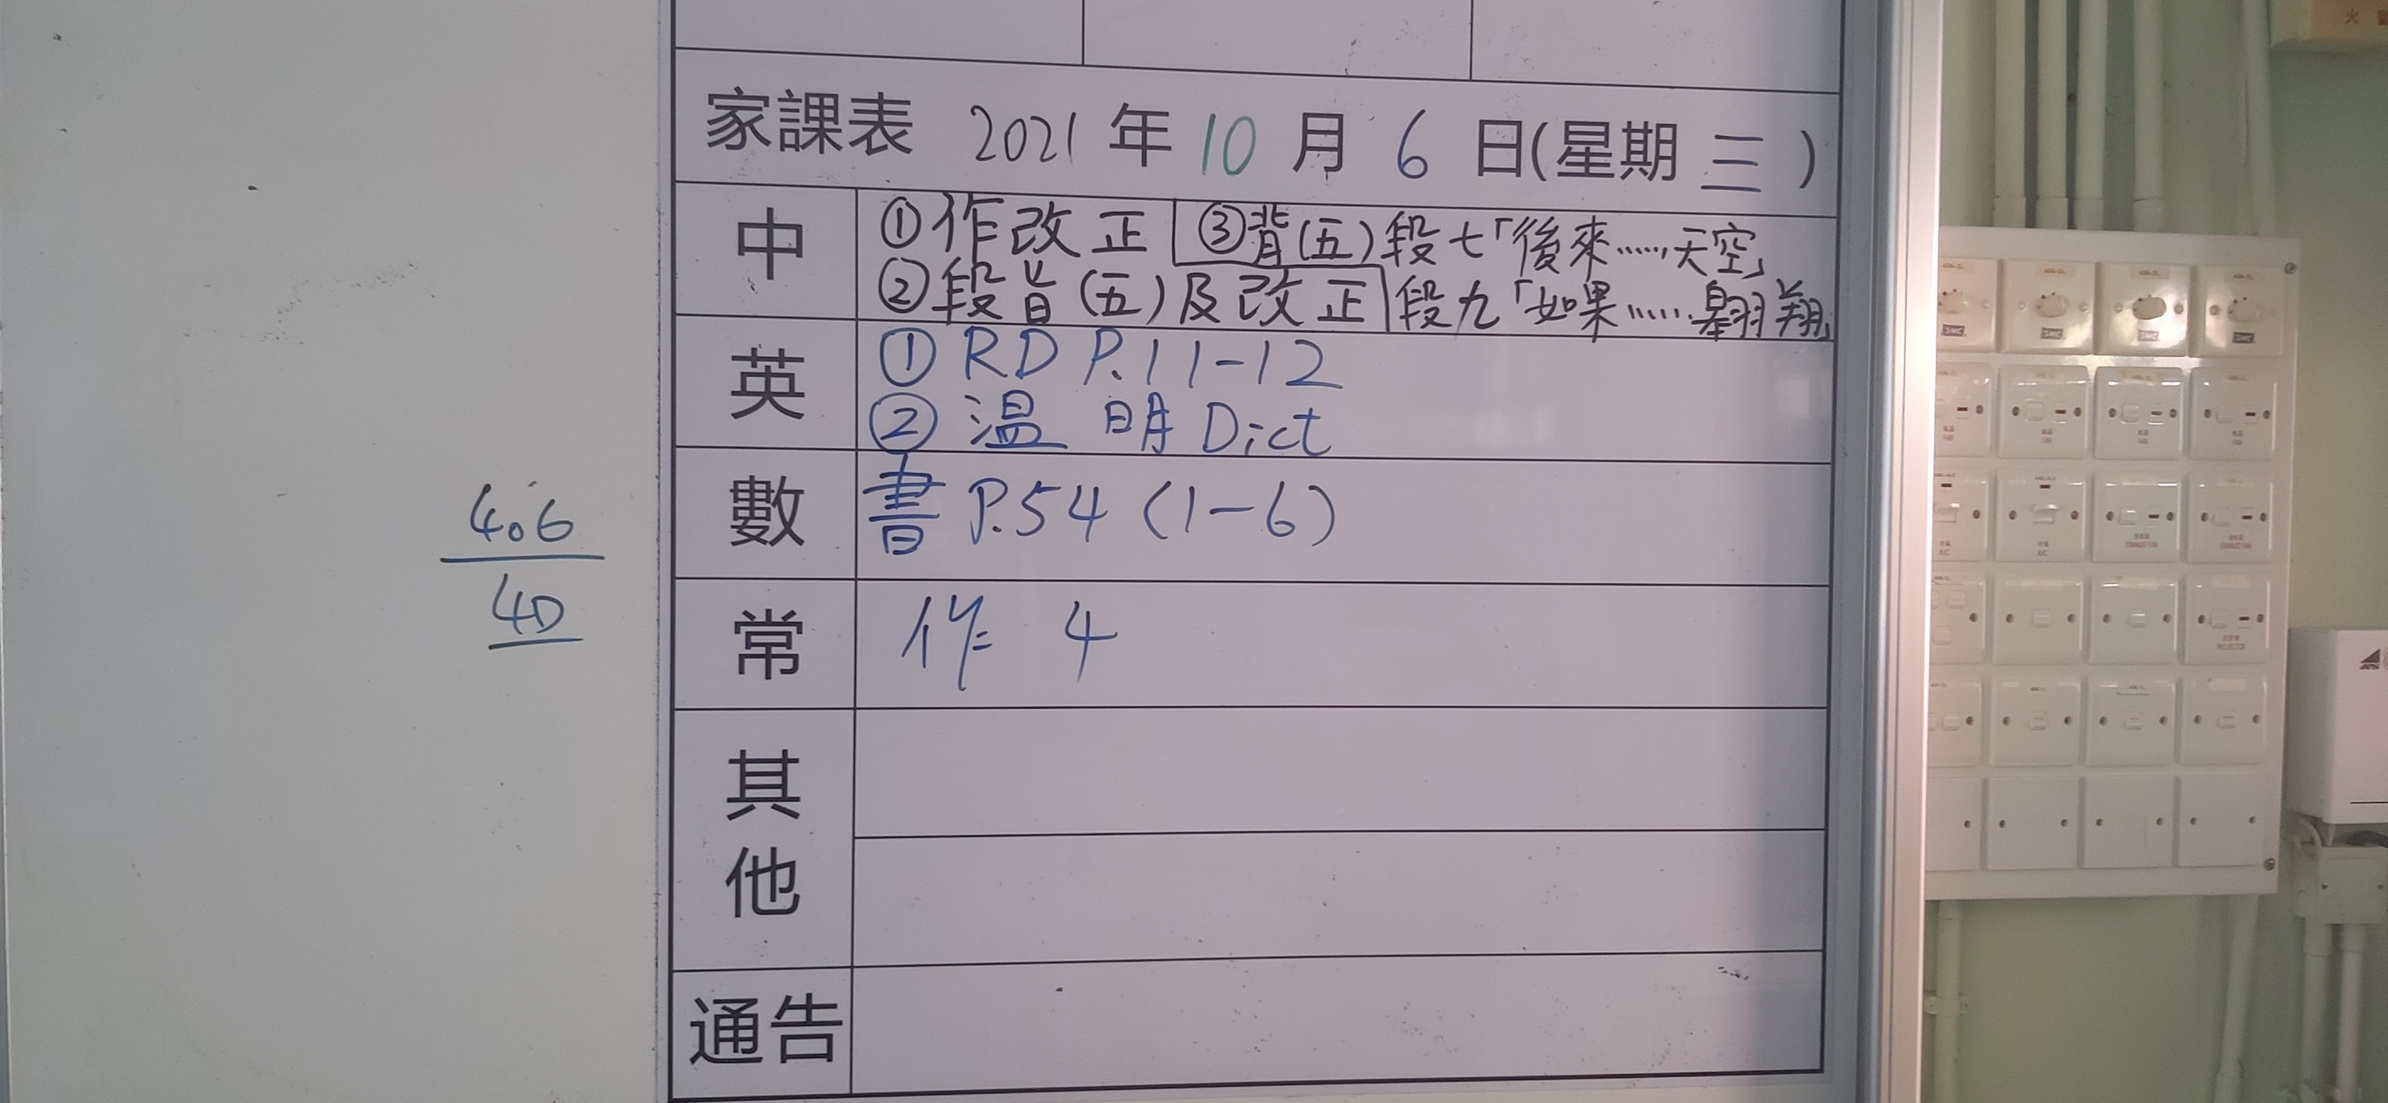 家課表 2021 年 10 月 6 日(星期 三 )
中
①作改正 ③背(五)段七「後來……天空」
②段旨(五)及改正 段九「如果……翱翔」
英
① RD P.11-12
② 溫 明 Dict
數
書 P.54 (1-6)
常
作 4
其他
通告
4.6
40